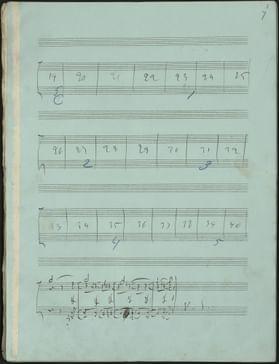 7
19 20 21 22 23 24 25
1
26 27 28 29 30 31 32
2 3
33 34 35 36 37 38 39 40
4 5